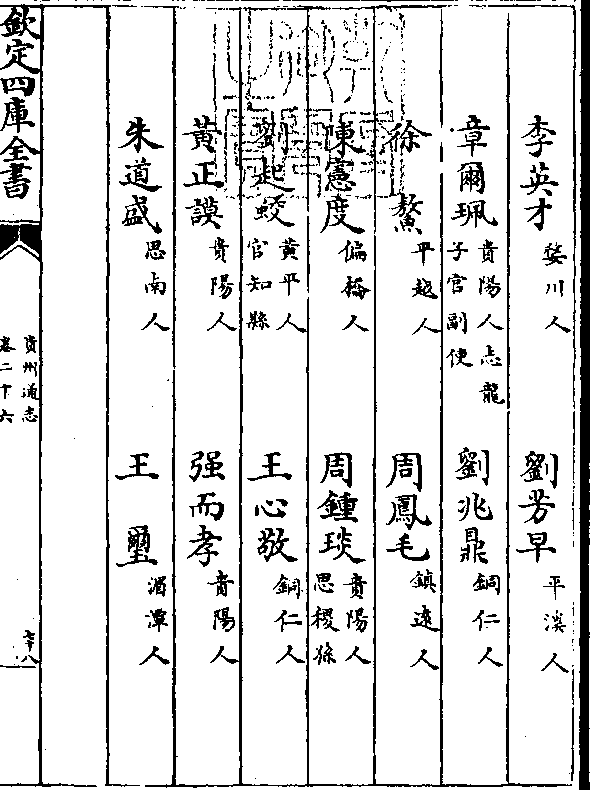 李英才 婺川人 劉芳早 平溪人
章爾珮 貴陽人志龍子官副使 劉兆鼎 銅仁人
徐鰲 平越人 周鳳毛 鎮遠人
陳憲度 偏橋人 周鍾琰 貴陽人思稷孫
劉起蛟 黃平人官知縣 王心敬 銅仁人
黃正謨 貴陽人 强而孝 貴陽人
朱道盛 思南人 王璽 湄潭人
欽定四庫全書
貴州通志
卷二十六